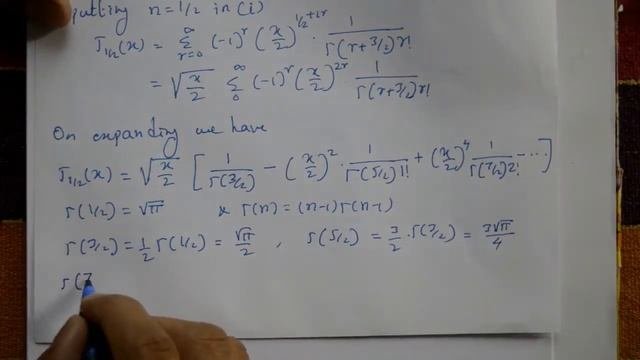 putting n=1/2 in (i)
J₁/₂(x) = Σ_{r=0}^{∞} (-1)^r (x/2)^{1/2+2r} · 1/(Γ(r+3/2) r!)
= √(x/2) Σ_{0}^{∞} (-1)^r (x/2)^{2r} 1/(Γ(r+3/2) r!)
On expanding we have
J₁/₂(x) = √(x/2) [ 1/Γ(3/2) - (x/2)^2 · 1/(Γ(5/2) 1!) + (x/2)^4 1/(Γ(7/2) 2!) - ... ]
Γ(1/2) = √π & Γ(n) = (n-1) Γ(n-1)
Γ(3/2) = 1/2 Γ(1/2) = √π/2 , Γ(5/2) = 3/2 · Γ(3/2) = 3√π/4
Γ(7